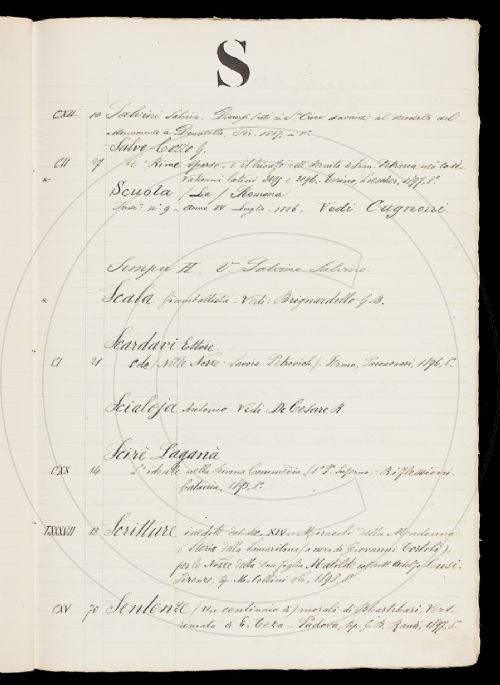 S
CXII 10 Salvini Salvino. davanti al modello del
Monumento a Donatello. Fir. 1887, in 8°.
Salvo-Cozzo G.
CII 27 Le "Rime sparse" e il trionfo dell'Eternità di Fran. Petrarca nei Codd.
Vaticani latini 3195 e 3196. Torino, Loescher, 1897, 8°.
* Scuola (La) Romana
Fasc° n° 9 - Anno IV Luglio - 1886. Vedi Cugnoni
Semper H. V. Salvini Salvino.
* Scala Giambattista - Vedi: Brignardello G. B.
Scardavi Ettore.
CI 21 Ode (Nelle Nozze Savoia-Petrovich). Fermo, 1896, 8°.
Scialoja Antonio - Vedi: De Cesare R.
Scirè Laganà
CXX 14 L'ideale nella Divina Commedia (1ª P. Inferno) - Riflessioni.
Catania, 1893, 8°.
LXXXVII 12 Scritture inedite del sec. XIV. Miracoli della Madonna
e Storia della Samaritana (a cura di Giovanni Tortoli),
per le Nozze della sua figlia Matilde
Firenze, tip. M. Cellini e C., 1898, 8°
CXV 70 Sentenze (Un centinaio di) morali di Bhartrhari, Vers.
rimata di E. Teza - Padova, tip. G. B. Randi, 1897, 8°